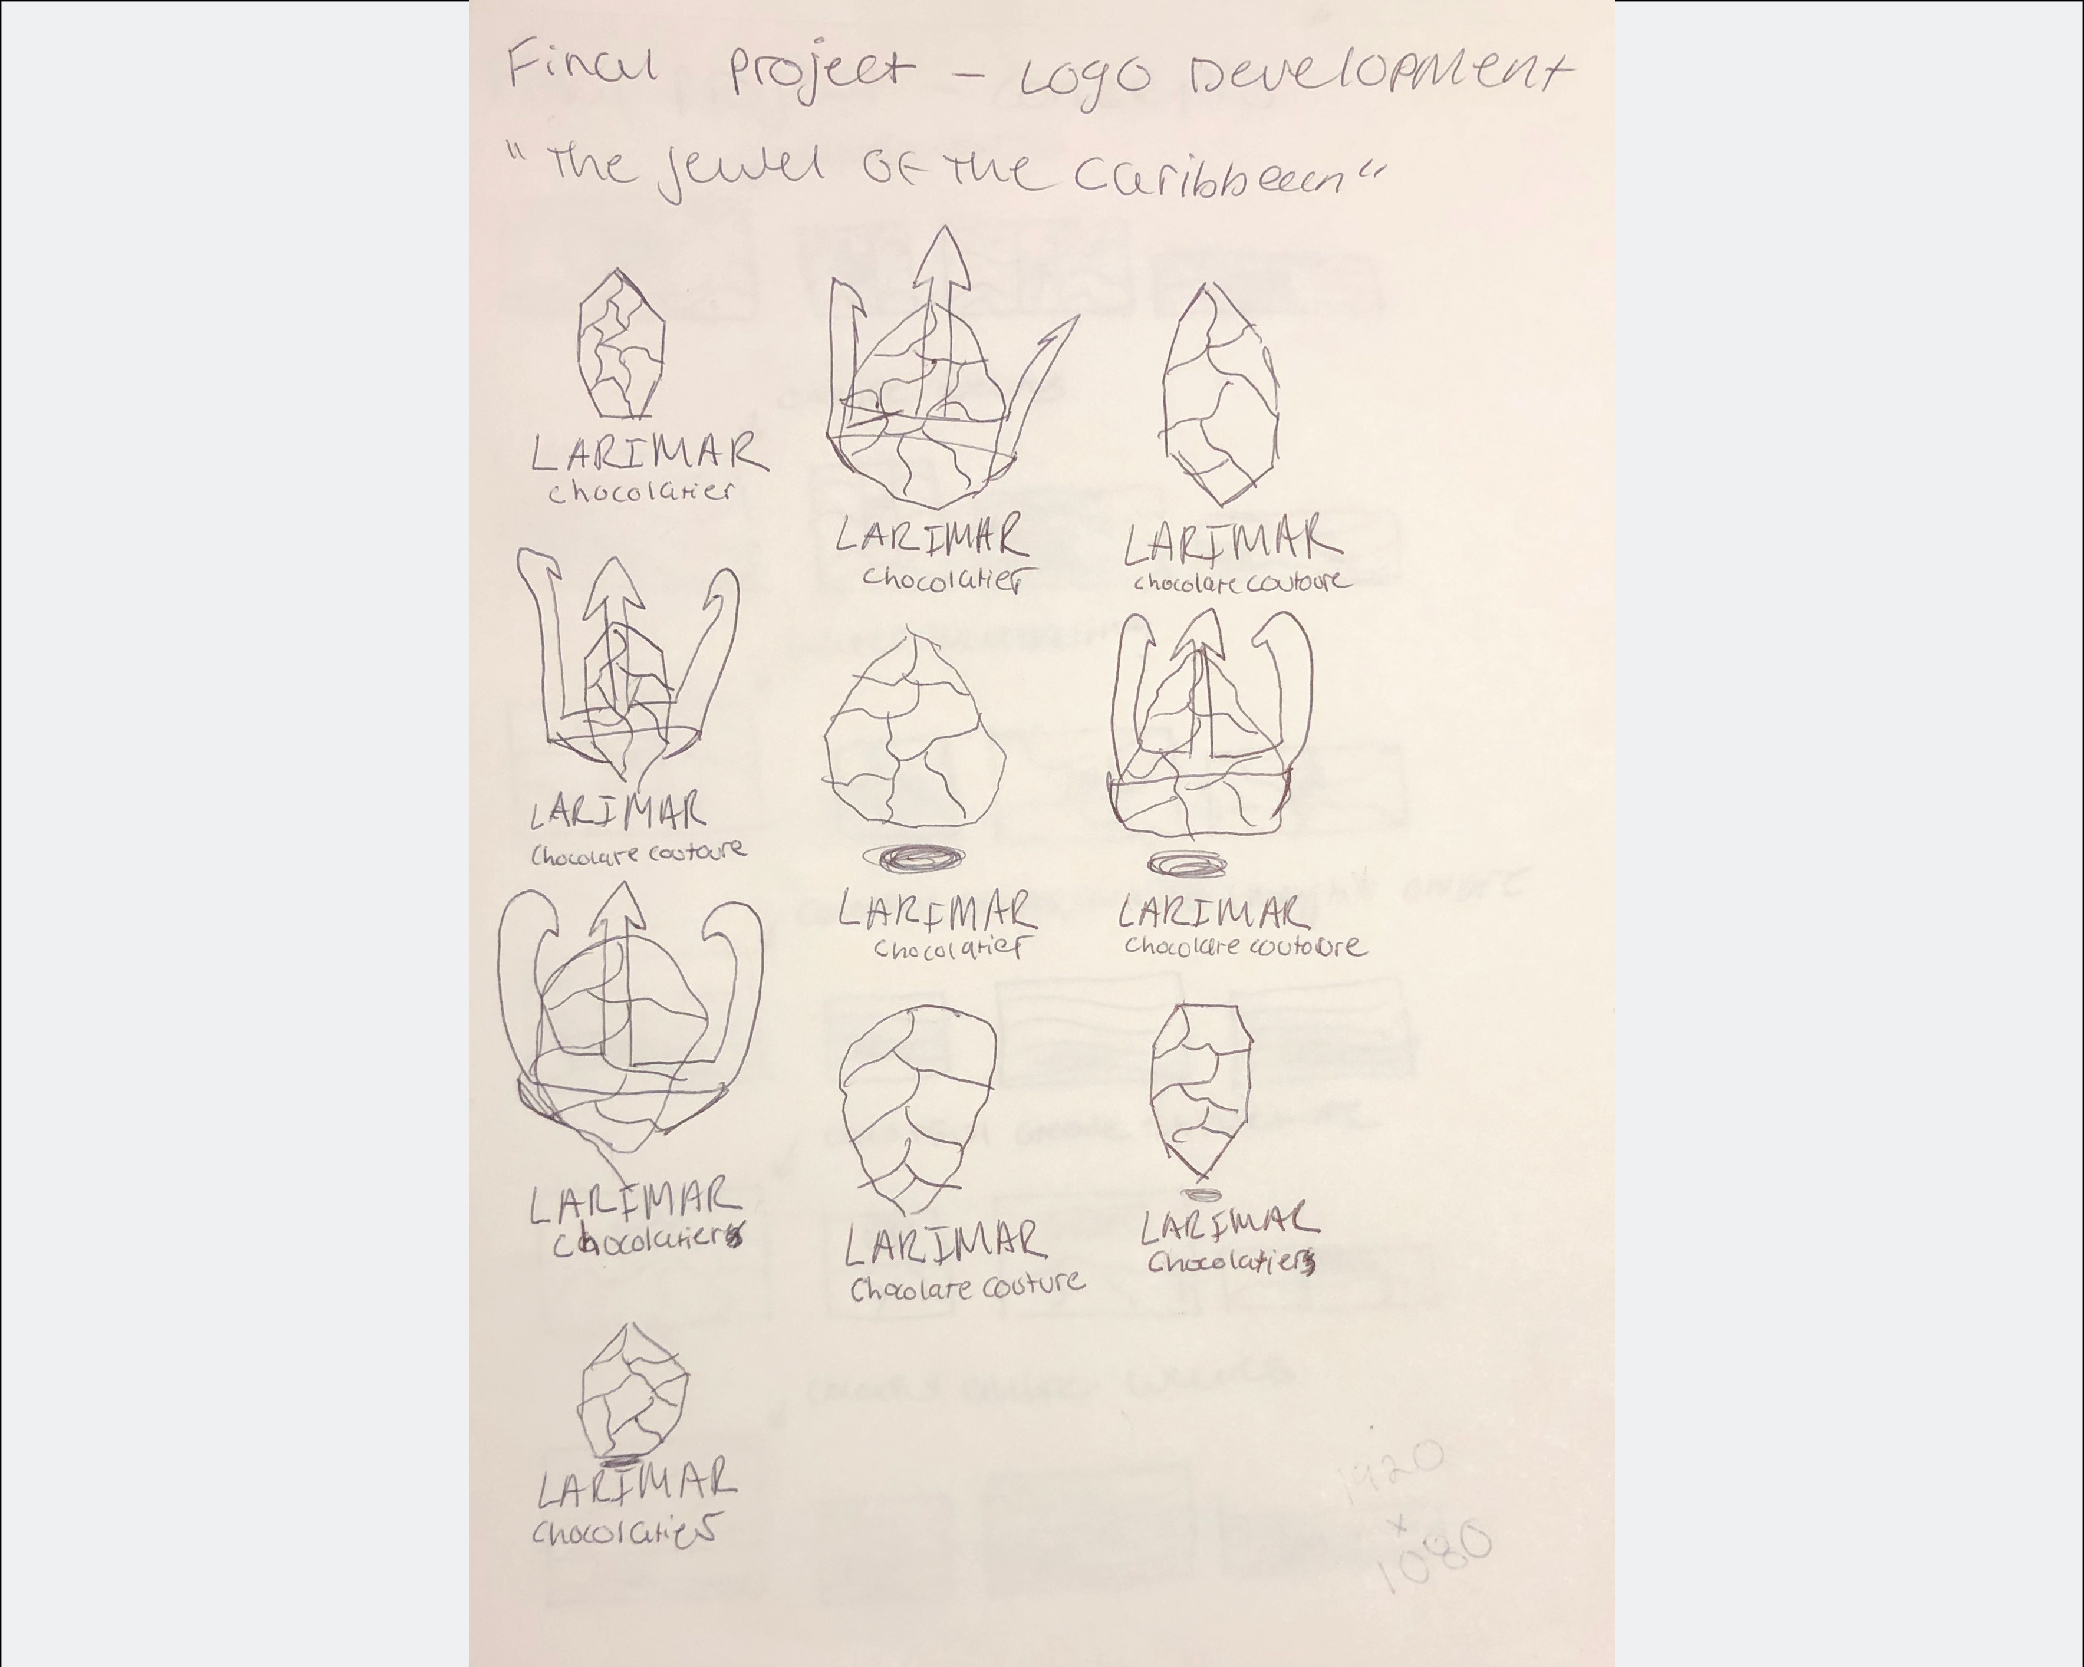 Final Project - Logo Development
"The Jewel of the Caribbeean"
LARIMAR
chocolatier
LARIMAR
chocolatier
LARIMAR
chocolate coutoure
LARIMAR
Chocolate coutoure
LARIMAR
chocolatier
LARIMAR
Chocolate coutoure
LARIMAR
chocolatier
LARIMAR
Chocolate couture
LARIMAR
Chocolatier
LARIMAR
chocolatier
1920
x
1080